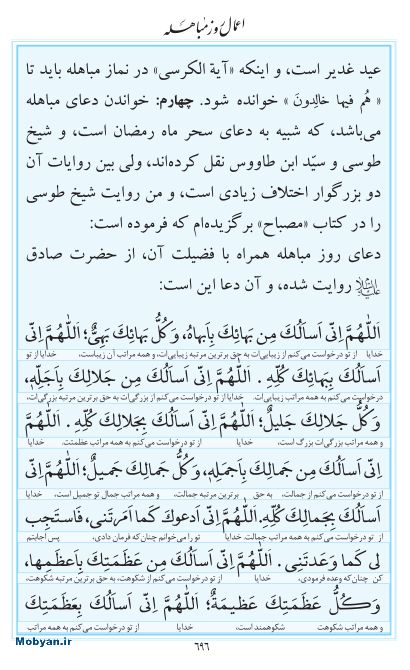 اعمال روز مباهله
عید غدیر است، و اینکه «آیة الکرسی» در نماز مباهله باید تا
«هُم فیها خالِدونَ» خوانده شود. چهارم: خواندن دعای مباهله
می‌باشد، که شبیه به دعای سحر ماه رمضان است، و شیخ
طوسی و سیّد ابن طاووس نقل کرده‌اند، ولی بین روایات آن
دو بزرگوار اختلاف زیادی است، و من روایت شیخ طوسی
را در کتاب «مصباح» برگزیده‌ام که فرموده است:
دعای روز مباهله همراه با فضیلت آن، از حضرت صادق
روایت شده، و آن دعا این است:
اَللّٰهُمَّ اِنّی اَسأَلُكَ مِن بَهائِكَ بِاَبهاهُ، وَكُلُّ بَهائِكَ بَهِیٌّ؛ اَللّٰهُمَّ اِنّی
خدایا از تو درخواست می‌کنم از زیبایی‌ات به حق برترین مرتبه زیبایی‌ات، و همه مراتب آن زیباست، خدایا از تو
اَسأَلُكَ بِبَهائِكَ كُلِّهِ. اَللّٰهُمَّ اِنّی اَسأَلُكَ مِن جَلالِكَ بِاَجَلِّهِ،
درخواست می‌کنم به همه مراتب زیبایی‌ات. خدایا از تو درخواست می‌کنم از بزرگی‌ات به حق برترین مرتبه بزرگی‌ات،
وَكُلُّ جَلالِكَ جَلیلٌ؛ اَللّٰهُمَّ اِنّی اَسأَلُكَ بِجَلالِكَ كُلِّهِ. اَللّٰهُمَّ
و همه مراتب بزرگی‌ات بزرگ است، خدایا از تو درخواست می‌کنم به همه مراتب عظمتت. خدایا
اِنّی اَسأَلُكَ مِن جَمالِكَ بِاَجمَلِهِ، وَكُلُّ جَمالِكَ جَمیلٌ؛ اَللّٰهُمَّ اِنّی
از تو درخواست می‌کنم از جمالت، به حق برترین مرتبه جمالت، و همه مراتب جمال تو جمیل است، خدایا
اَسأَلُكَ بِجَمالِكَ كُلِّهِ. اَللّٰهُمَّ اِنّی اَدعوكَ كَما اَمَرتَنی، فَاستَجِب
از تو درخواست می‌کنم به همه مراتب جمالت. خدایا تو را می‌خوانم چنان‌که فرمان دادی، پس اجابتم
لی كَما وَعَدتَنی. اَللّٰهُمَّ اِنّی اَسأَلُكَ مِن عَظَمَتِكَ بِاَعظَمِها،
کن چنان‌که وعده فرمودی، خدایا از تو درخواست می‌کنم از شکوهت، به حق برترین مرتبه شکوهت،
وَكُلُّ عَظَمَتِكَ عَظیمَةٌ؛ اَللّٰهُمَّ اِنّی اَسأَلُكَ بِعَظَمَتِكَ
و همه مراتب شکوهت شکوهمند است، خدایا از تو درخواست می‌کنم به همه مراتب
۶۹۶
Mobyan.ir